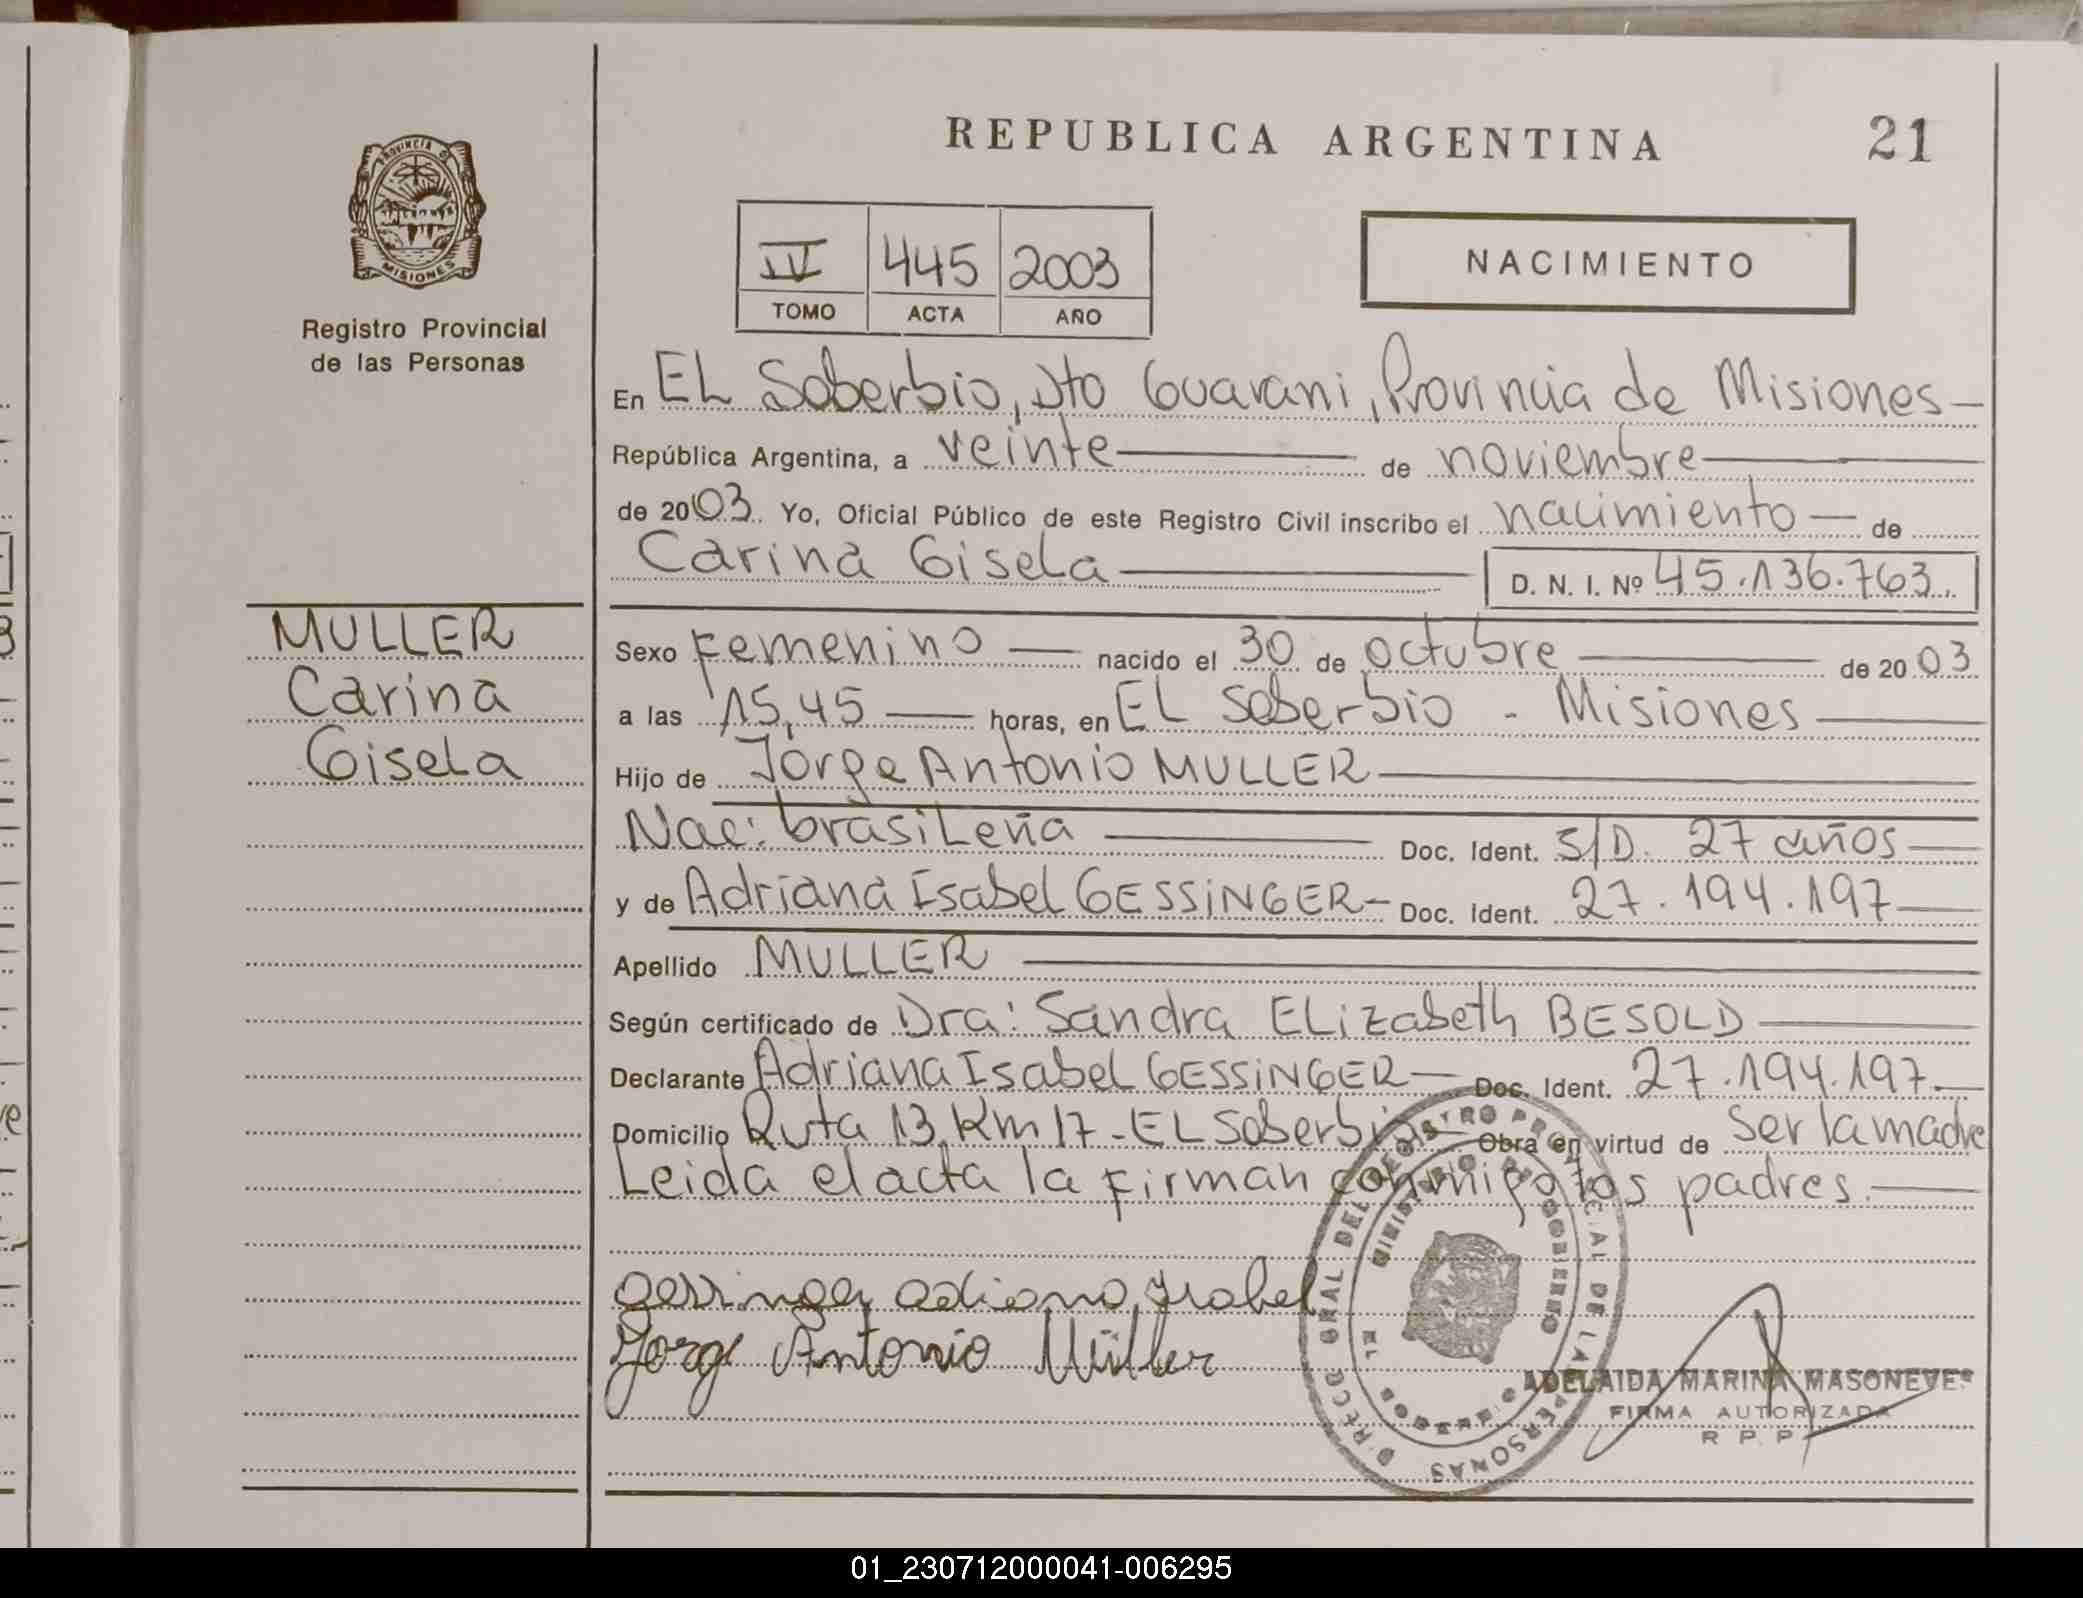 REPUBLICA ARGENTINA 21
PROVINCIA DE
MISIONES
Registro Provincial
de las Personas
IV 445 2003
TOMO ACTA AÑO
NACIMIENTO
En EL Soberbio, Dto Guarani, Provincia de Misiones
República Argentina, a veinte de noviembre
de 2003. Yo, Oficial Público de este Registro Civil inscribo el nacimiento de
Carina Gisela D. N. I. Nº 45.136.763.
MULLER
Carina
Gisela
Sexo Femenino nacido el 30 de octubre de 2003
a las 15,45 horas, en EL Soberbio - Misiones
Hijo de Jorge Antonio MULLER
Nac: brasileña Doc. Ident. S/D. 27 años
y de Adriana Isabel GESSINGER Doc. Ident. 27.194.197
Apellido MULLER
Según certificado de Dra: Sandra Elizabeth BESOLD
Declarante Adriana Isabel GESSINGER Doc. Ident. 27.194.197
Domicilio Ruta 13 Km 17 - EL Soberbio Obra en virtud de ser la madre
Leida el acta la firman conmigo los padres.
gessinger adriana Isabel
Jorge Antonio Müller
DIRECC GRAL DEL REGISTRO PROVINCIAL DE LAS PERSONAS
MINISTERIO DE GOBIERNO
EL SOBERBIO
ADELAIDA MARINA MASONEVES
FIRMA AUTORIZADA
R P P
01_230712000041-006295